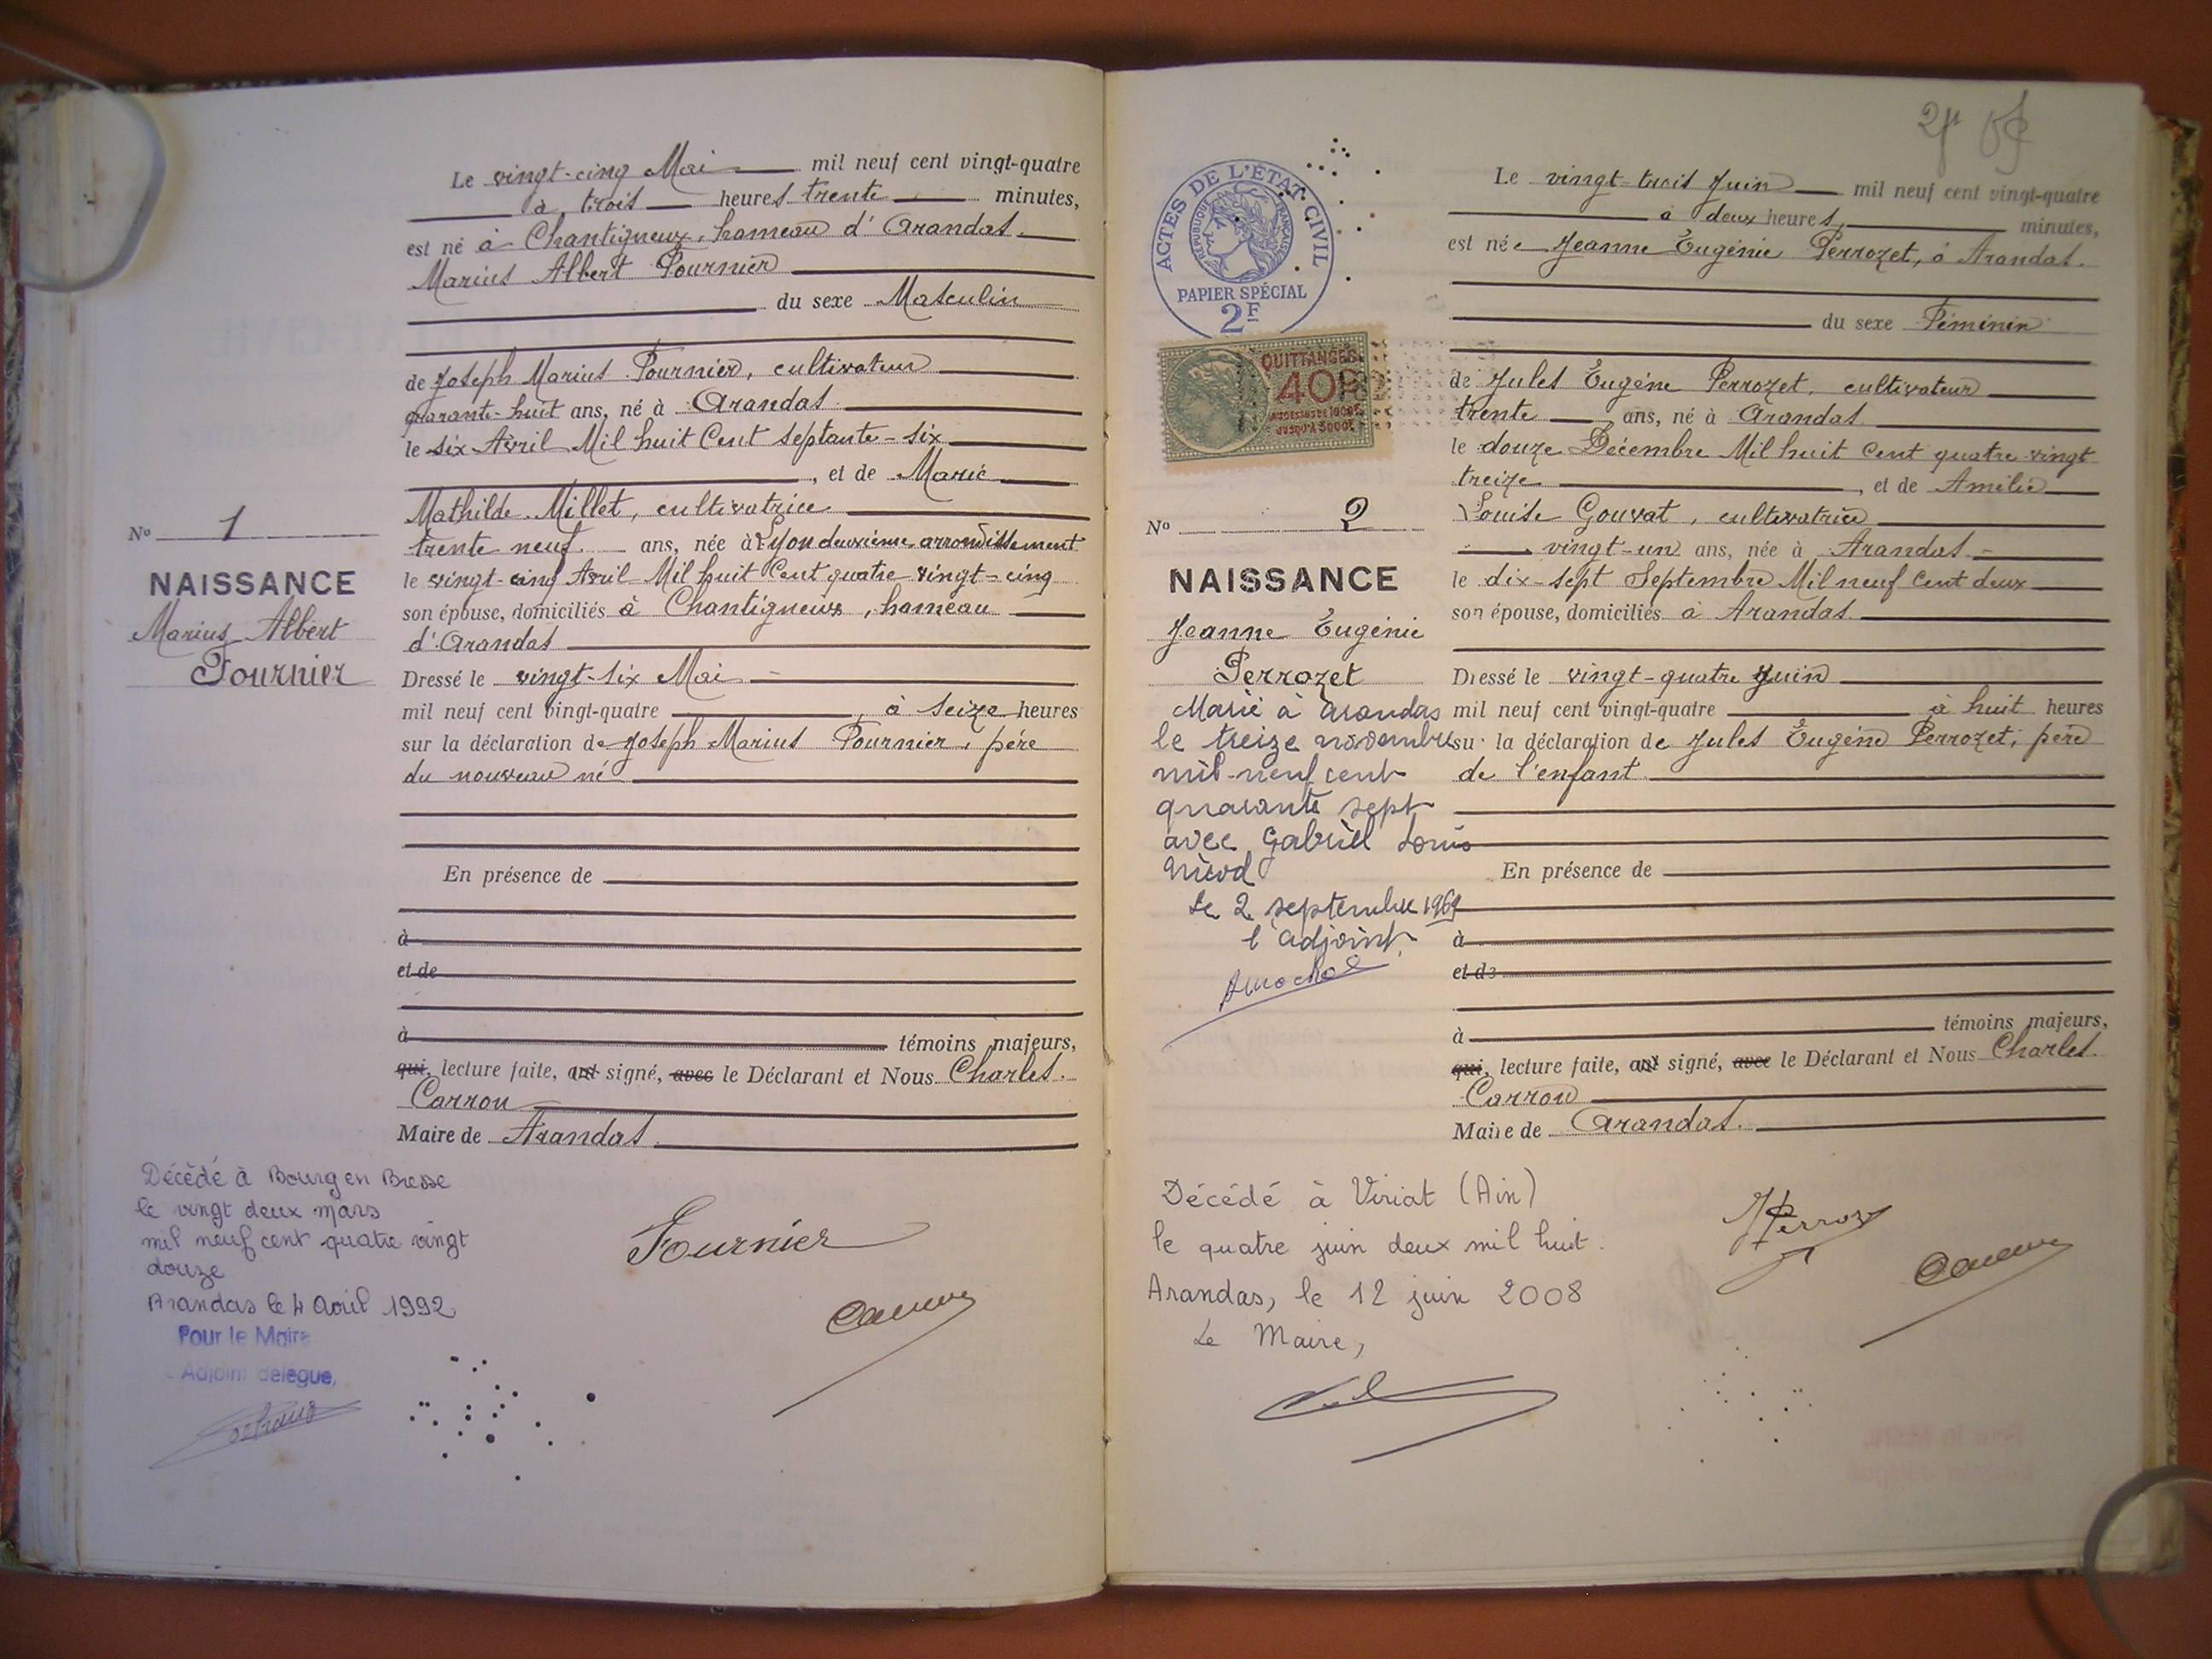 Le vingt-cinq Mai mil neuf cent vingt-quatre
à trois heures trente minutes,
est né à Chantigneux, hameau d'Arandas.
Marius Albert Fournier
du sexe Masculin
de Joseph Marius Fournier, cultivateur
quarante-huit ans, né à Arandas
le six Avril Mil huit Cent septante-six
, et de Marie
Mathilde Millet, cultivatrice
trente neuf ans, née à Lyon deuxième arrondissement
le vingt-cinq Avril Mil huit Cent quatre vingt-cinq
son épouse, domiciliés à Chantigneux, hameau
d'Arandas
Dressé le vingt-six Mai
mil neuf cent vingt-quatre, à seize heures
sur la déclaration de Joseph Marius Fournier, père
du nouveau né
En présence de
à
et de
à témoins majeurs,
qui, lecture faite, ont signé, avec le Déclarant et Nous Charles
Carron
Maire de Arandas
No 1
NAISSANCE
Marius Albert
Fournier
Décédé à Bourg en Bresse
le vingt deux mars
mil neuf cent quatre vingt
douze
Arandas le 4 Avril 1992
Pour le Maire
Adjoint délégué,
Fournier
2F
ACTES DE L'ÉTAT CIVIL
RÉPUBLIQUE FRANÇAISE
PAPIER SPÉCIAL
2F
QUITTANCES
40
No 2
NAISSANCE
Jeanne Eugénie
Perrozet
Marié à Arandas
le treize novembre
mil-neuf cent
quarante sept
avec Gabriel Louis
Nicod
Le 2 septembre 1969
l'adjoint
Le vingt-trois Juin mil neuf cent vingt-quatre
à deux heures, minutes,
est née Jeanne Eugénie Perrozet, à Arandas.
du sexe Féminin
de Jules Eugène Perrozet, cultivateur
trente ans, né à Arandas
le douze Décembre Mil huit Cent quatre vingt
treize, et de Amélie
Louise Gouvat, cultivatrice
vingt-un ans, née à Arandas
le dix-sept Septembre Mil neuf Cent deux
son épouse, domiciliés à Arandas
Dressé le vingt-quatre Juin
mil neuf cent vingt-quatre à huit heures
sur la déclaration de Jules Eugène Perrozet, père
de l'enfant
En présence de
à
et de
à témoins majeurs,
qui, lecture faite, ont signé, avec le Déclarant et Nous Charles
Carron
Maire de Arandas.
Décédé à Viriat (Ain)
le quatre juin deux mil huit.
Arandas, le 12 juin 2008
Le Maire,